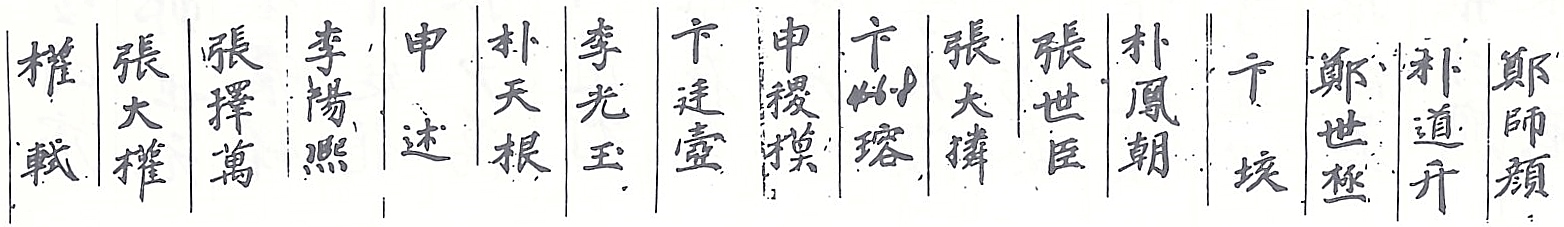 鄭師顔
朴道升
鄭世極
卞垓
朴鳳朝
張世臣
張大擕
卞瑢
申稷模
卞廷壼
李光玉
朴天根
申述
李陽熈
張擇萬
張大權
權軾